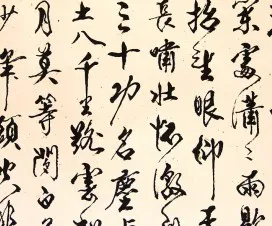 處瀟々雨歇
抬望眼仰天
長嘯壯懷激烈
三十功名塵與
土八千里路雲和
月莫等閒白了
少年頭空悲